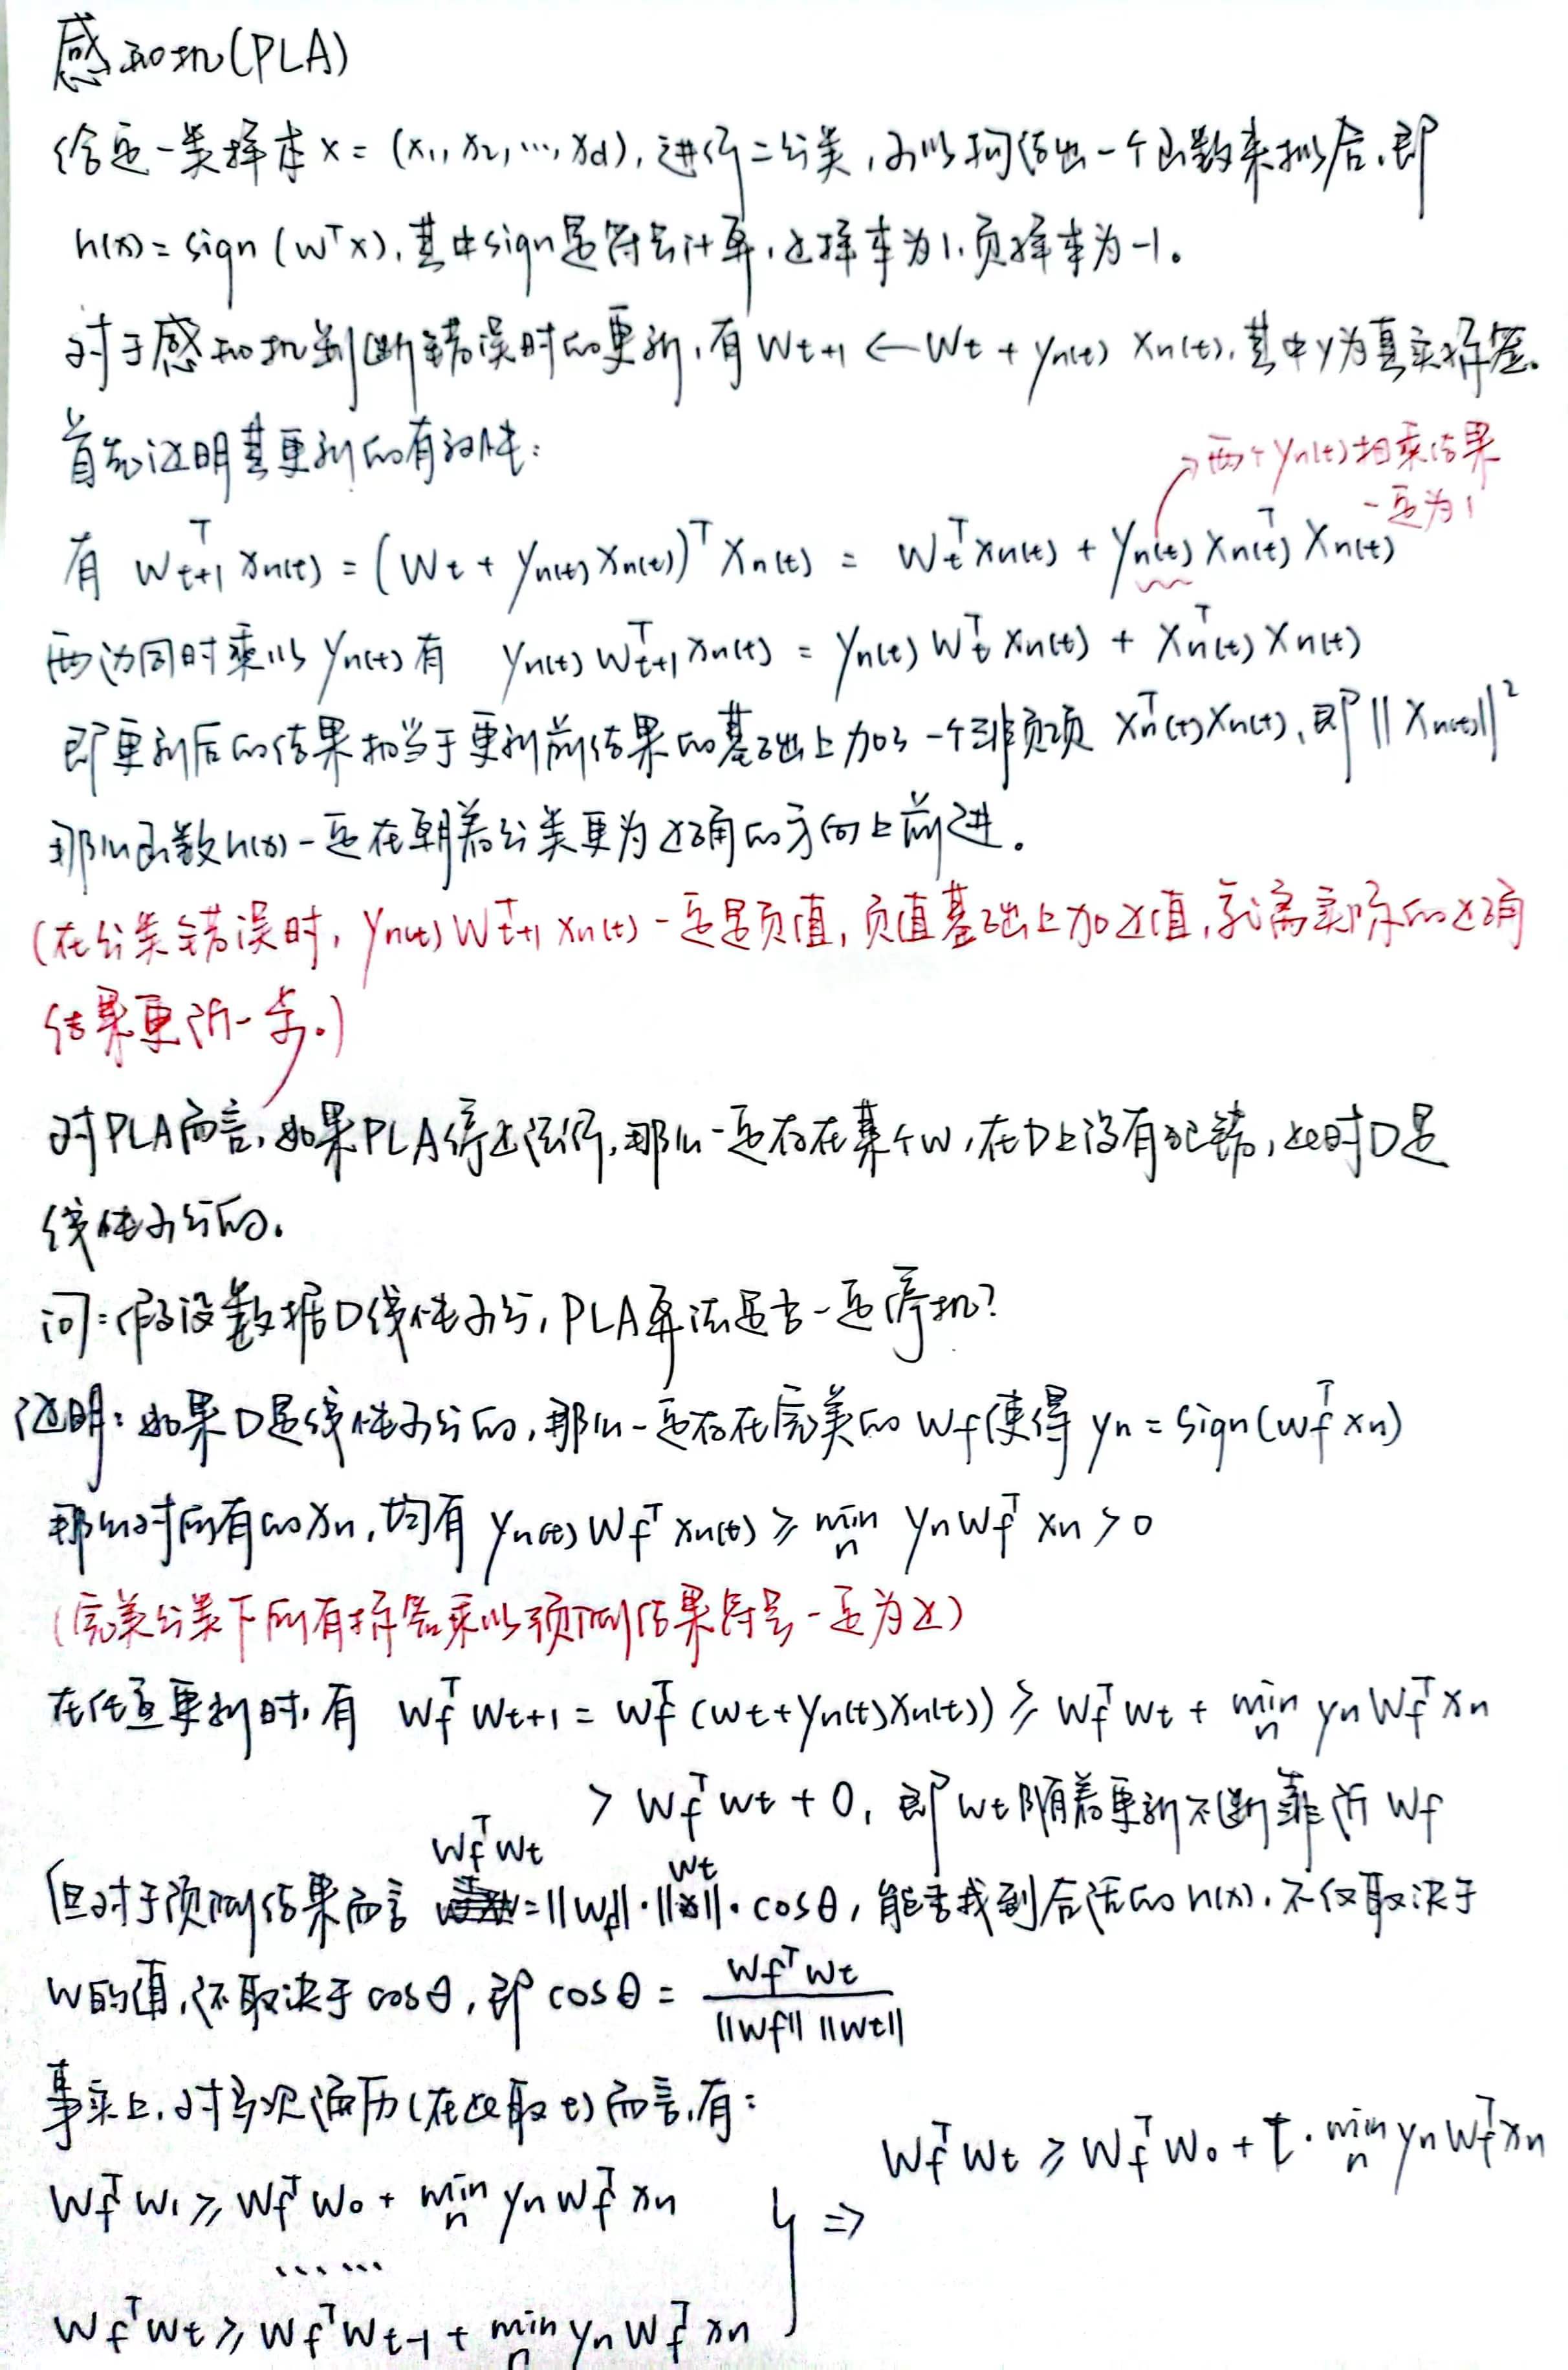 感知机(PLA)
给定一类样本 x = (x₁, x₂, …, xd), 进行二分类, 可以构造出一个函数来拟合, 即
h(x) = sign (wᵀx), 其中sign是符号计算, 正样本为1, 负样本为-1。
对于感知机判断错误时的更新, 有 Wt+1 ← Wt + yn(t) xn(t), 其中y为真实标签.
首先证明其更新的有效性:
→两个yn(t)相乘结果
一定为1
有 Wᵀt+1 xn(t) = (Wt + yn(t) xn(t))ᵀ xn(t) = Wᵀt xn(t) + yn(t) xᵀn(t) xn(t)
两边同时乘以 yn(t) 有 yn(t) Wᵀt+1 xn(t) = yn(t) Wᵀt xn(t) + xᵀn(t) xn(t)
即更新后的结果相当于更新前结果的基础上加了一个非负项 xᵀn(t) xn(t), 即 ||xn(t)||²
那么函数h(x)一定在朝着分类更为正确的方向上前进。
(在分类错误时, yn(t) Wᵀt+1 xn(t) 一定是负值, 负值基础上加正值, 就离实际的正确
结果更近一步.)
对PLA而言, 如果PLA停止运行, 那么一定存在某个w, 在D上没有犯错, 此时D是
线性可分的.
问: 假设数据D线性可分, PLA算法是否一定停机?
证明: 如果D是线性可分的, 那么一定存在完美的 Wf 使得 yn = sign(Wᵀf xn)
那么对所有的xn, 均有 yn(t) Wfᵀ xn(t) ≥ min n yn Wᵀf xn > 0
(完美分类下所有标签乘以预测结果符号一定为正)
在任意更新时, 有 Wᵀf Wt+1 = Wᵀf (Wt + yn(t) xn(t)) ≥ Wᵀf Wt + min n yn Wᵀf xn
> Wᵀf Wt + 0, 即 Wt 随着更新不断靠近 Wf
但对于预测结果而言 Wᵀf Wt = ||Wf||·||Wt||·cosθ, 能否找到合适的 h(x), 不仅取决于
W的值, 还取决于 cosθ, 即 cosθ = Wfᵀ Wt / ||Wf|| ||Wt||
事实上, 对多次遍历(在此取t)而言, 有:
Wᵀf W₁ ≥ Wᵀf W₀ + min n yn Wᵀf xn
……
Wfᵀ Wt ≥ Wfᵀ Wt-1 + min n yn Wᵀf xn
} ⇒ Wᵀf Wt ≥ Wᵀf W₀ + t · min n yn Wᵀf xn